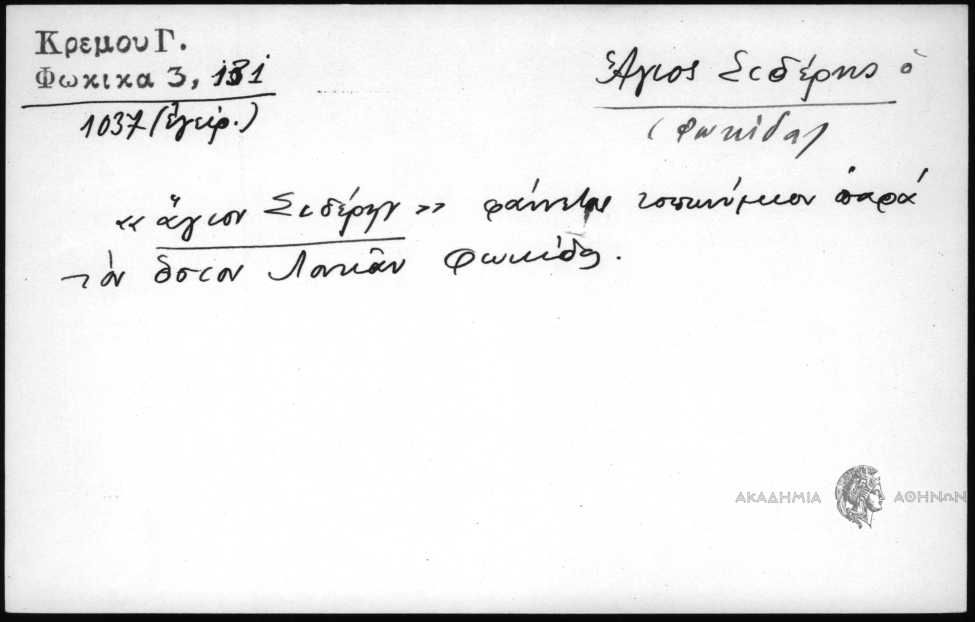 Κρεμου Γ.
Φωκικα 3, 131
1037 (ἐγείρ.)
Ἅγιος Σιδέρης ὁ
(Φωκίδα)
«ἅγιον Σιδέρην» φαίνεται τοπωνύμιον παρὰ
τὸν ὅσιον Λουκᾶν Φωκίδος.
ΑΚΑΔΗΜΙΑ ΑΘΗΝΩΝ